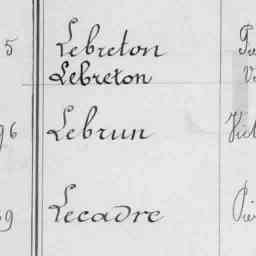 5 Lebreton
Lebreton
96 Lebrun
9 Lecadre